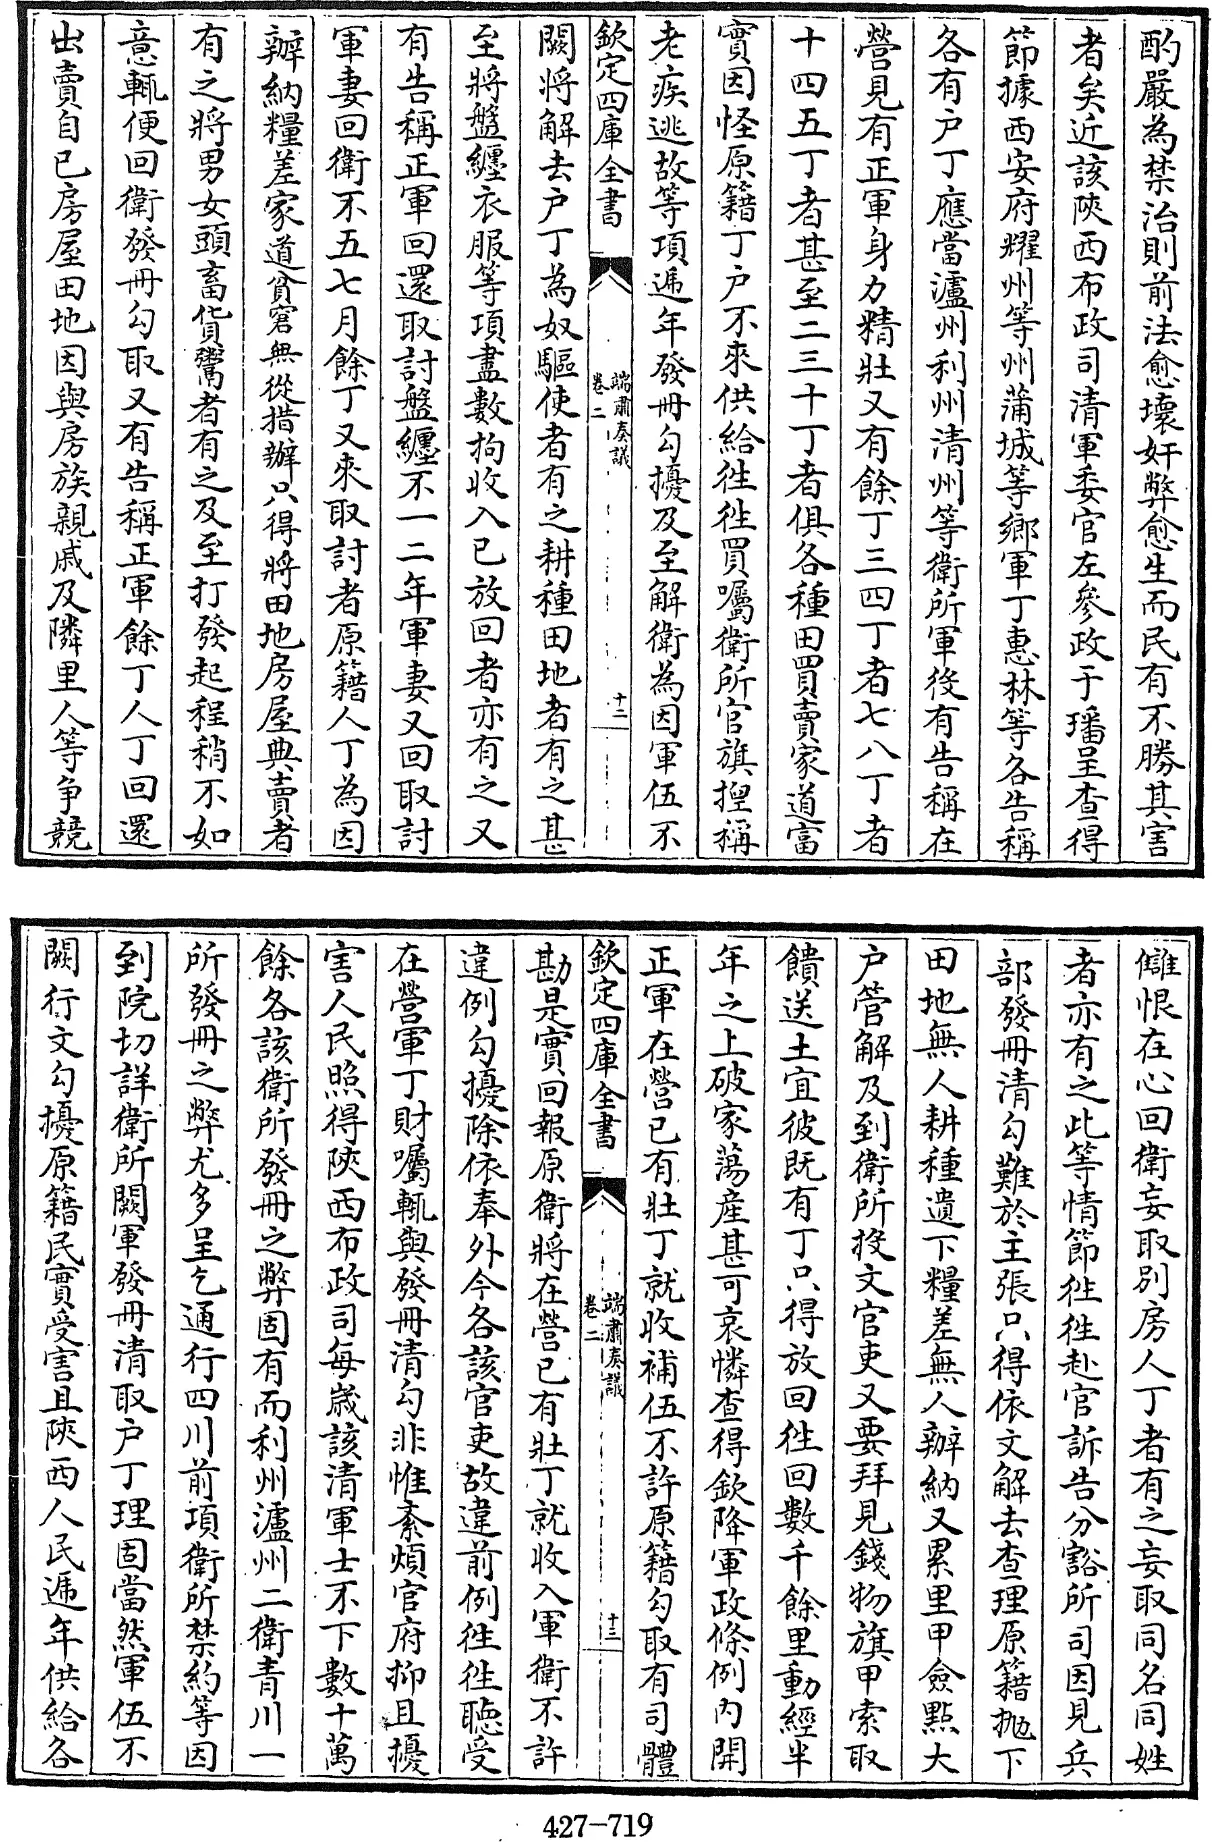 酌嚴為禁治則前法愈壞奸弊愈生而民有不勝其害
者矣近該陜西布政司清軍委官左參政于璠呈查得
節據西安府耀州等州蒲城等鄉軍丁惠林等各告稱
各有户丁應當瀘州利州清州等衛所軍役有告稱在
營見有正軍身力精壯又有餘丁三四丁者七八丁者
十四五丁者甚至二三十丁者俱各種田買賣家道富
實因怪原籍丁户不來供給徃徃買囑衛所官旗揑稱
老疾逃故等項遞年發冊勾擾及至解衛為因軍伍不
欽定四庫全書
端肅奏議
卷二
十二
闕將解去户丁為奴驅使者有之耕種田地者有之甚
至將盤纏衣服等項盡數拘收入已放回者亦有之又
有告稱正軍回還取討盤纒不一二年軍妻又回取討
軍妻回衛不五七月餘丁又來取討者原籍人丁為因
辦納糧差家道貧窘無從措辦只得將田地房屋典賣者
有之將男女頭畜貨鬻者有之及至打發起程稍不如
意輒便回衛發冊勾取又有告稱正軍餘丁人丁回還
出賣自已房屋田地因與房族親戚及隣里人等争競
讎恨在心回衛妄取别房人丁者有之妄取同名同姓
者亦有之此等情節徃徃赴官訴告分豁所司因見兵
部發冊清勾難於主張只得依文解去查理原籍拋下
田地無人耕種遺下糧差無人辦納又累里甲僉點大
户管解及到衛所投文官吏又要拜見錢物旗甲索取
饋送土宜彼既有丁只得放回徃回數千餘里動經半
年之上破家蕩産甚可哀憐查得欽降軍政條例内開
正軍在營已有壯丁就收補伍不許原籍勾取有司體
欽定四庫全書
端肅奏議
卷二
十三
勘是實回報原衛將在營已有壯丁就收入軍衛不許
違例勾擾除依奉外今各該官吏故違前例徃徃聽受
在營軍丁財囑輒與發冊清勾非惟紊煩官府抑且擾
害人民照得陜西布政司每嵗該清軍士不下數十萬
餘各該衛所發冊之弊固有而利州瀘州二衛青川一
所發冊之弊尤多呈乞通行四川前項衛所禁約等因
到院切詳衛所闕軍發冊清取户丁理固當然軍伍不
闕行文勾擾原籍民實受害且陜西人民遞年供給各
427-719